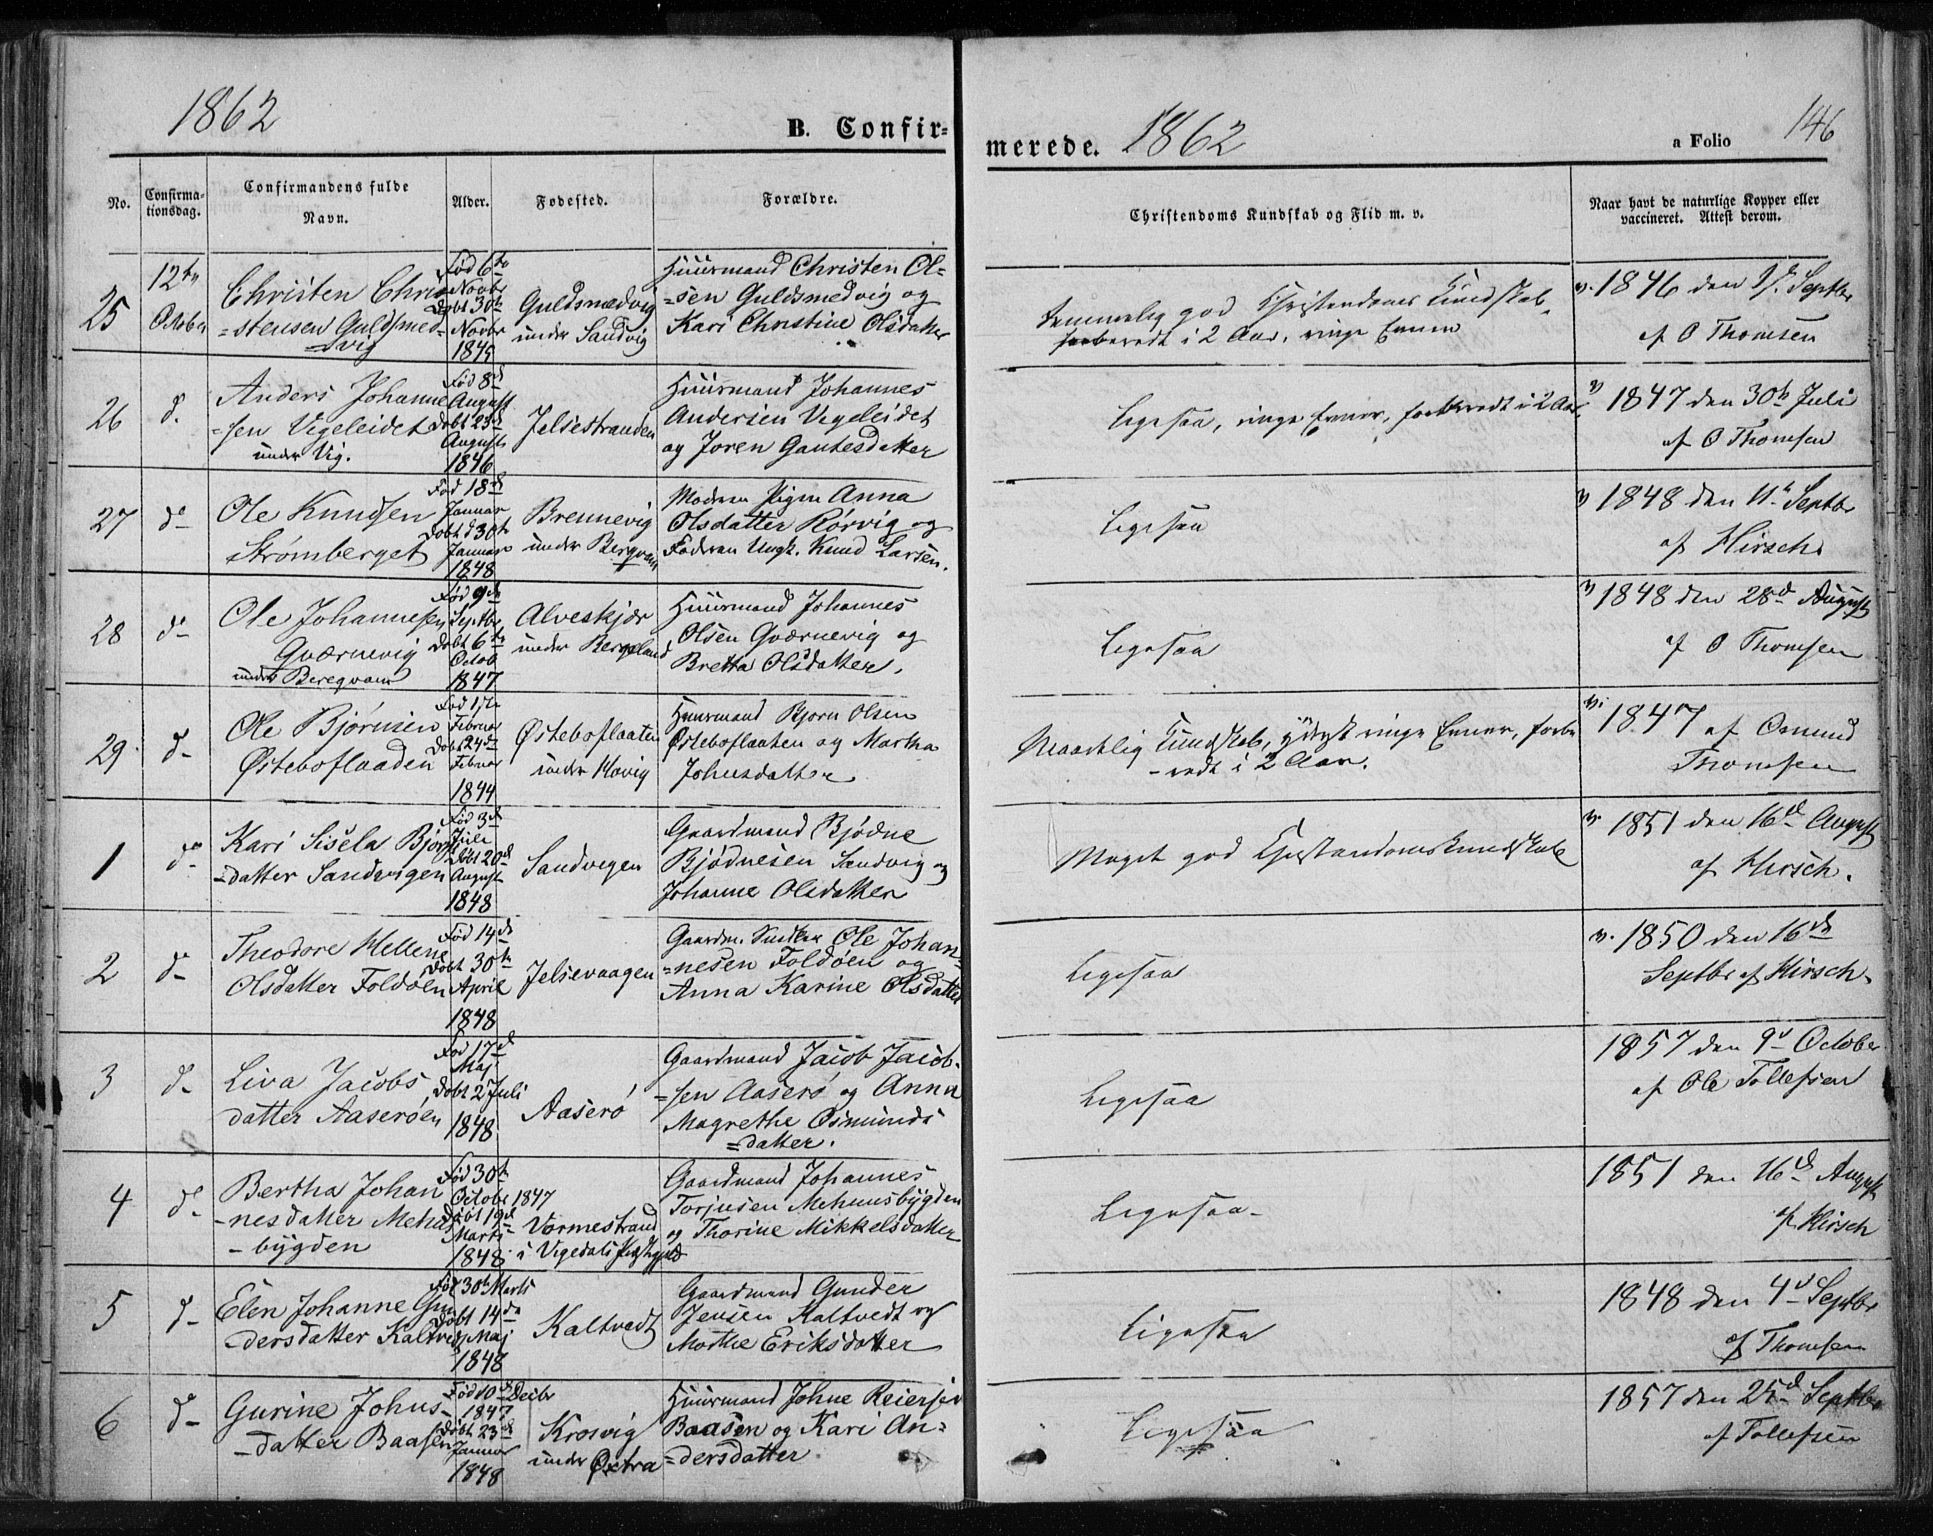 1862
B. Confir-
merede. 1862
a Folio 146
No.
Confirma-
tionsdag.
Confirmandens fulde
Navn.
Alder.
Fødested.
Forældre.
Christendoms Kundskab og Flid m. v.
Naar havt de naturlige Kopper eller
vaccineret. Attest derom.
25
12te
October
Christen Chri-
=stensen Guldsmed-
=vig
Fød 6te
Novbr
Døbt 30te
Novbr
1845
Guldsmedvig
under Sandvig
Huusmand Christen Ol=
=sen Guldsmedvig og
Kari Christine Olsdatter
Temmelig god Christendoms Kundskab,
forberedt i 2 Aar, ringe Evner
v. 1846 den Septbr
af O Thomsen
26
do
Anders Johanne
=sen Vigeleidet
under Vig.
Fød 8d
August
Døbt 23d
August
1846
Jelsestranden
Huusmand Johannes
Andersen Vegeleidet
og Joren Gautesdatter
Ligesaa, ringe Evner, forberedt i 2 Aar
v 1847 den 30te Juli
af O Thomsen
27
do
Ole Knudsen
Strømberget
Fød 18d
Januar
Døbt d 30te
Januar
1848
Brennevig
under Bergvam
Moderen Pigen Anna
Olsdatter Rørvig og
Faderen Ungk. Knud Larsen.
Ligesaa
v 1848 den 11te Septbr
af Hirsch
28
do
Ole Johannesen
Gværnevig
under Beregvam
Fød 9de
Septbr
Døbt 6te
Octob
1847
Alveskjær
under Bergeland
Huusmand Johannes
Olsen Gværnevig og
Bretta Olsdatter.
Ligesaa
v 1848 den 28d August
af O Thomsen
29
do
Ole Bjørnsen
Østeboflaaden
Fød 17de
Februar
Døbt 24de
Februar
1844
Østeboflaaten
under Hovig
Huusmand Bjorn Olsen
Østeboflaaten og Martha
Johnsdatter
Maadelig Kundskab, yderst ringe Evner, forbe
-redt i 2 Aar.
v. 1847 af Osmund
Thomsen
1
do
Kari Sisela Bjørns
=datter Sandvigen
Fød 3d
Juli
Døbt 20d
August
1848
Sandvegen
Gaardmand Bjødne
Bjødnesen Sandvig og
Johanne Olsdatter
Meget god Christendomskundskab
v. 1851 den 16d August
af Hirsch.
2
do
Theodore Hellene
Olsdatter Foldøen
Fød 14de
Døbt 30te
April
1848
Jelsevaagen
Gaardm. Ole Johan=
=nesen Foldøen og
Anna Karine Olsdatter
Ligesaa
v. 1850 den 16de
Septbr af Hirsch.
3
do
Liva Jacobs
datter Aaserøen
Fød 17d
Maj
Døbt 2 Juli
1848
Aaserø
Gaardmand Jacob Jacob-
=sen Aaserø og Anna
Magrethe Osmunds
=datter.
Ligesaa
1857 den 9d October
af Ole Tollefsen
4
do
Bertha Johan
-nesdatter Mehus
-bygden
Fød 30te
Octobr 1847
Døbt 19d
Marts
1848
Vormestrand
i Vigedals Præstegjæld
Gaardmand Johannes
Torjusen Mehuusbygden
og Thorine Mikkelsdatter
Ligesaa-
1851 den 16d August
af Hirsch
5
do
Elen Johanne Gun
-dersdatter Kaltved
Fød 30te Marts
Døbt 14de
Maj
1848
Kaltvedt
Gaardmand Gunder
Jensen Kaltvedt og
Marthe Eriksdatter
Ligesaa
1848 den 4d Septbr
af Thomsen
6
do
Gurine Johns-
-datter Baasen
Fød 10d Decbr
1847
Døbt 23d
Januar
1848
Krosvig
under Østra
Huusmand Johne Reiersen
Baasen og Kari An=
=dersdatter
Ligesaa
1857 den 25d Septbr
af Tollefsen